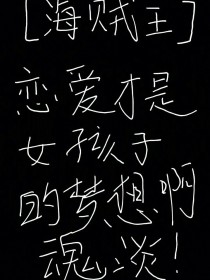 [海贼王]
恋爱才是
女孩子
的梦想啊
魂淡!